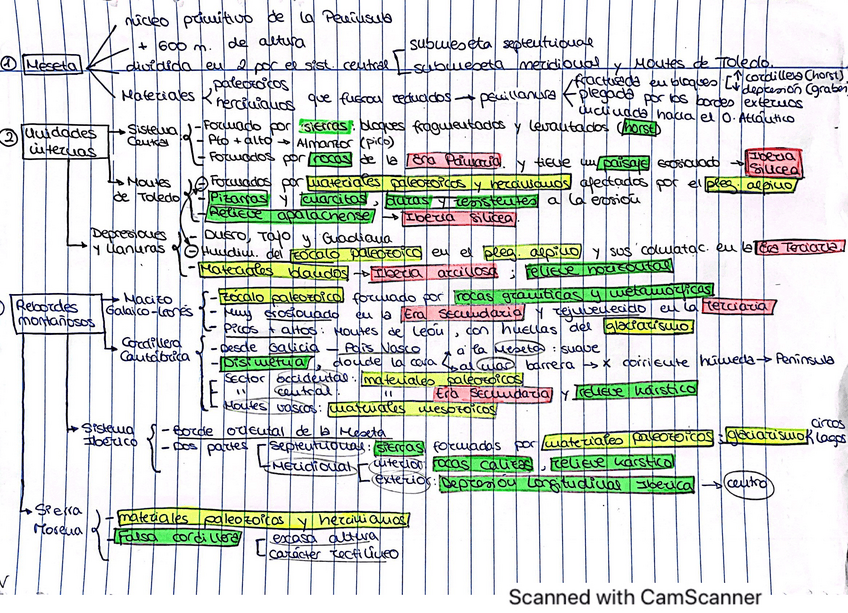 núcleo primitivo de la Península
+ 600 m. de altura
① Meseta
dividida en 2 por el sist. central [ submeseta septentrional
submeseta meridional y Montes de Toledo.
Materiales < paleozoicos
hercinianos que fueron reducidos → penillanura
fracturada en bloques [ ↑ cordillera (horst)
↓ depresión (graben)
plegada por los bordes externos
inclinado hacia el O. Atlántico
② Unidades internas
→ Sistema Central
- Formado por sierras: bloques fragmentados y levantados (horst)
- Pto + alto → Almanzor (pico)
- Formados por rocas de la Era Primaria. y tiene un paisaje erosionado → Iberia Silícea
→ Montes de Toledo
- Formados por materiales paleozoicos y hercinianos afectados por el pleg. alpino
- Pizarras y cuarcitas, duras y resistentes a la erosión
- Relieve apalachense → Iberia Silícea.
→ Depresiones y llanuras
- Duero, Tajo y Guadiana
- Hundim. del zócalo paleozoico en el pleg. alpino y sus colmatac. en la Era Terciaria
- Materiales blandos → Iberia arcillosa; relieve horizontal
Rebordes montañosos
→ Macizo Galaico-Leonés
- zócalo paleozoico formado por rocas graníticas y metamórficas
- Muy erosionado en la Era Secundaria y rejuvenecido en la Terciaria
- Picos + altos: Montes de León, con huellas del glaciarismo
→ Cordillera Cantábrica
- desde Galicia – País Vasco
- Disimetría, donde la cara
a la Meseta: suave
al mar barrera → x corriente húmeda → Península
- Sector occidental: materiales paleozoicos
" central: " Era Secundaria y relieve kárstico
- Montes vascos: materiales mesozoicos
→ Sistema Ibérico
- borde oriental de la Meseta
- Dos partes
Septentrional: sierras formadas por materiales paleozoicos; glaciarismo < circos
lagos
Meridional
interior: rocas calizas, relieve kárstico
exterior: Depresión Longitudinal Ibérica → centro
→ Sierra Morena
- materiales paleozoicos y hercinianos
- Falsa cordillera [ escasa altura
carácter rectilíneo
Scanned with CamScanner